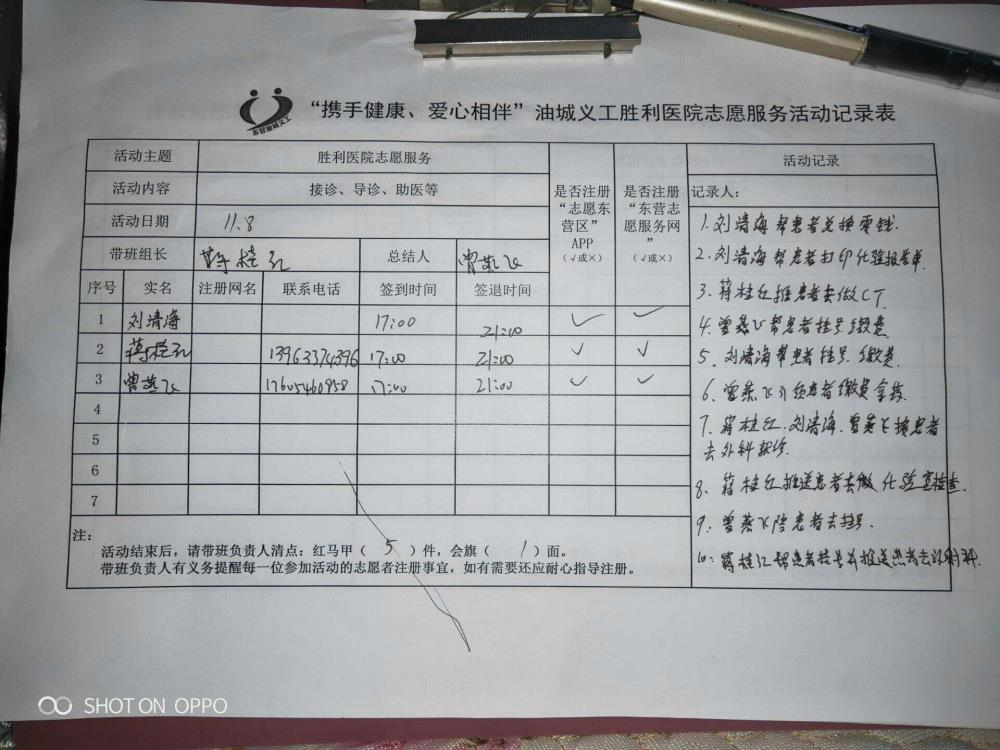 东营油城义工
“携手健康、爱心相伴”油城义工胜利医院志愿服务活动记录表
活动主题 胜利医院志愿服务
活动内容 接诊、导诊、助医等
活动日期 11.8
带班组长 蒋桂红 总结人 曾燕飞
是否注册“志愿东营区”APP（√或×）
是否注册“东营志愿服务网”（√或×）
序号 实名 注册网名 联系电话 签到时间 签退时间
1 刘清海 17:00 21:00 ✓ ✓
2 蒋桂红 13963374396 17:00 21:00 ✓ ✓
3 曾燕飞 17605460858 17:00 21:00 ✓ ✓
4
5
6
7
注：
活动结束后，请带班负责人清点：红马甲（ 5 ）件，会旗（ 1 ）面。
带班负责人有义务提醒每一位参加活动的志愿者注册事宜，如有需要还应耐心指导注册。
活动记录
记录人：
1.刘清海帮患者兑换零钱.
2.刘清海帮患者打印化验报告单.
3.蒋桂红推患者去做CT
4.曾燕飞帮患者挂号缴费
5.刘清海帮患者挂号.缴费.
6.曾燕飞引领患者缴费拿药.
7.蒋桂红.刘清海.曾燕飞接患者
去外科就诊.
8.蒋桂红推送患者去做化验室检查.
9.曾燕飞陪患者去挂号.
10.蒋桂红帮患者挂号并推送患者去放射科.
SHOT ON OPPO